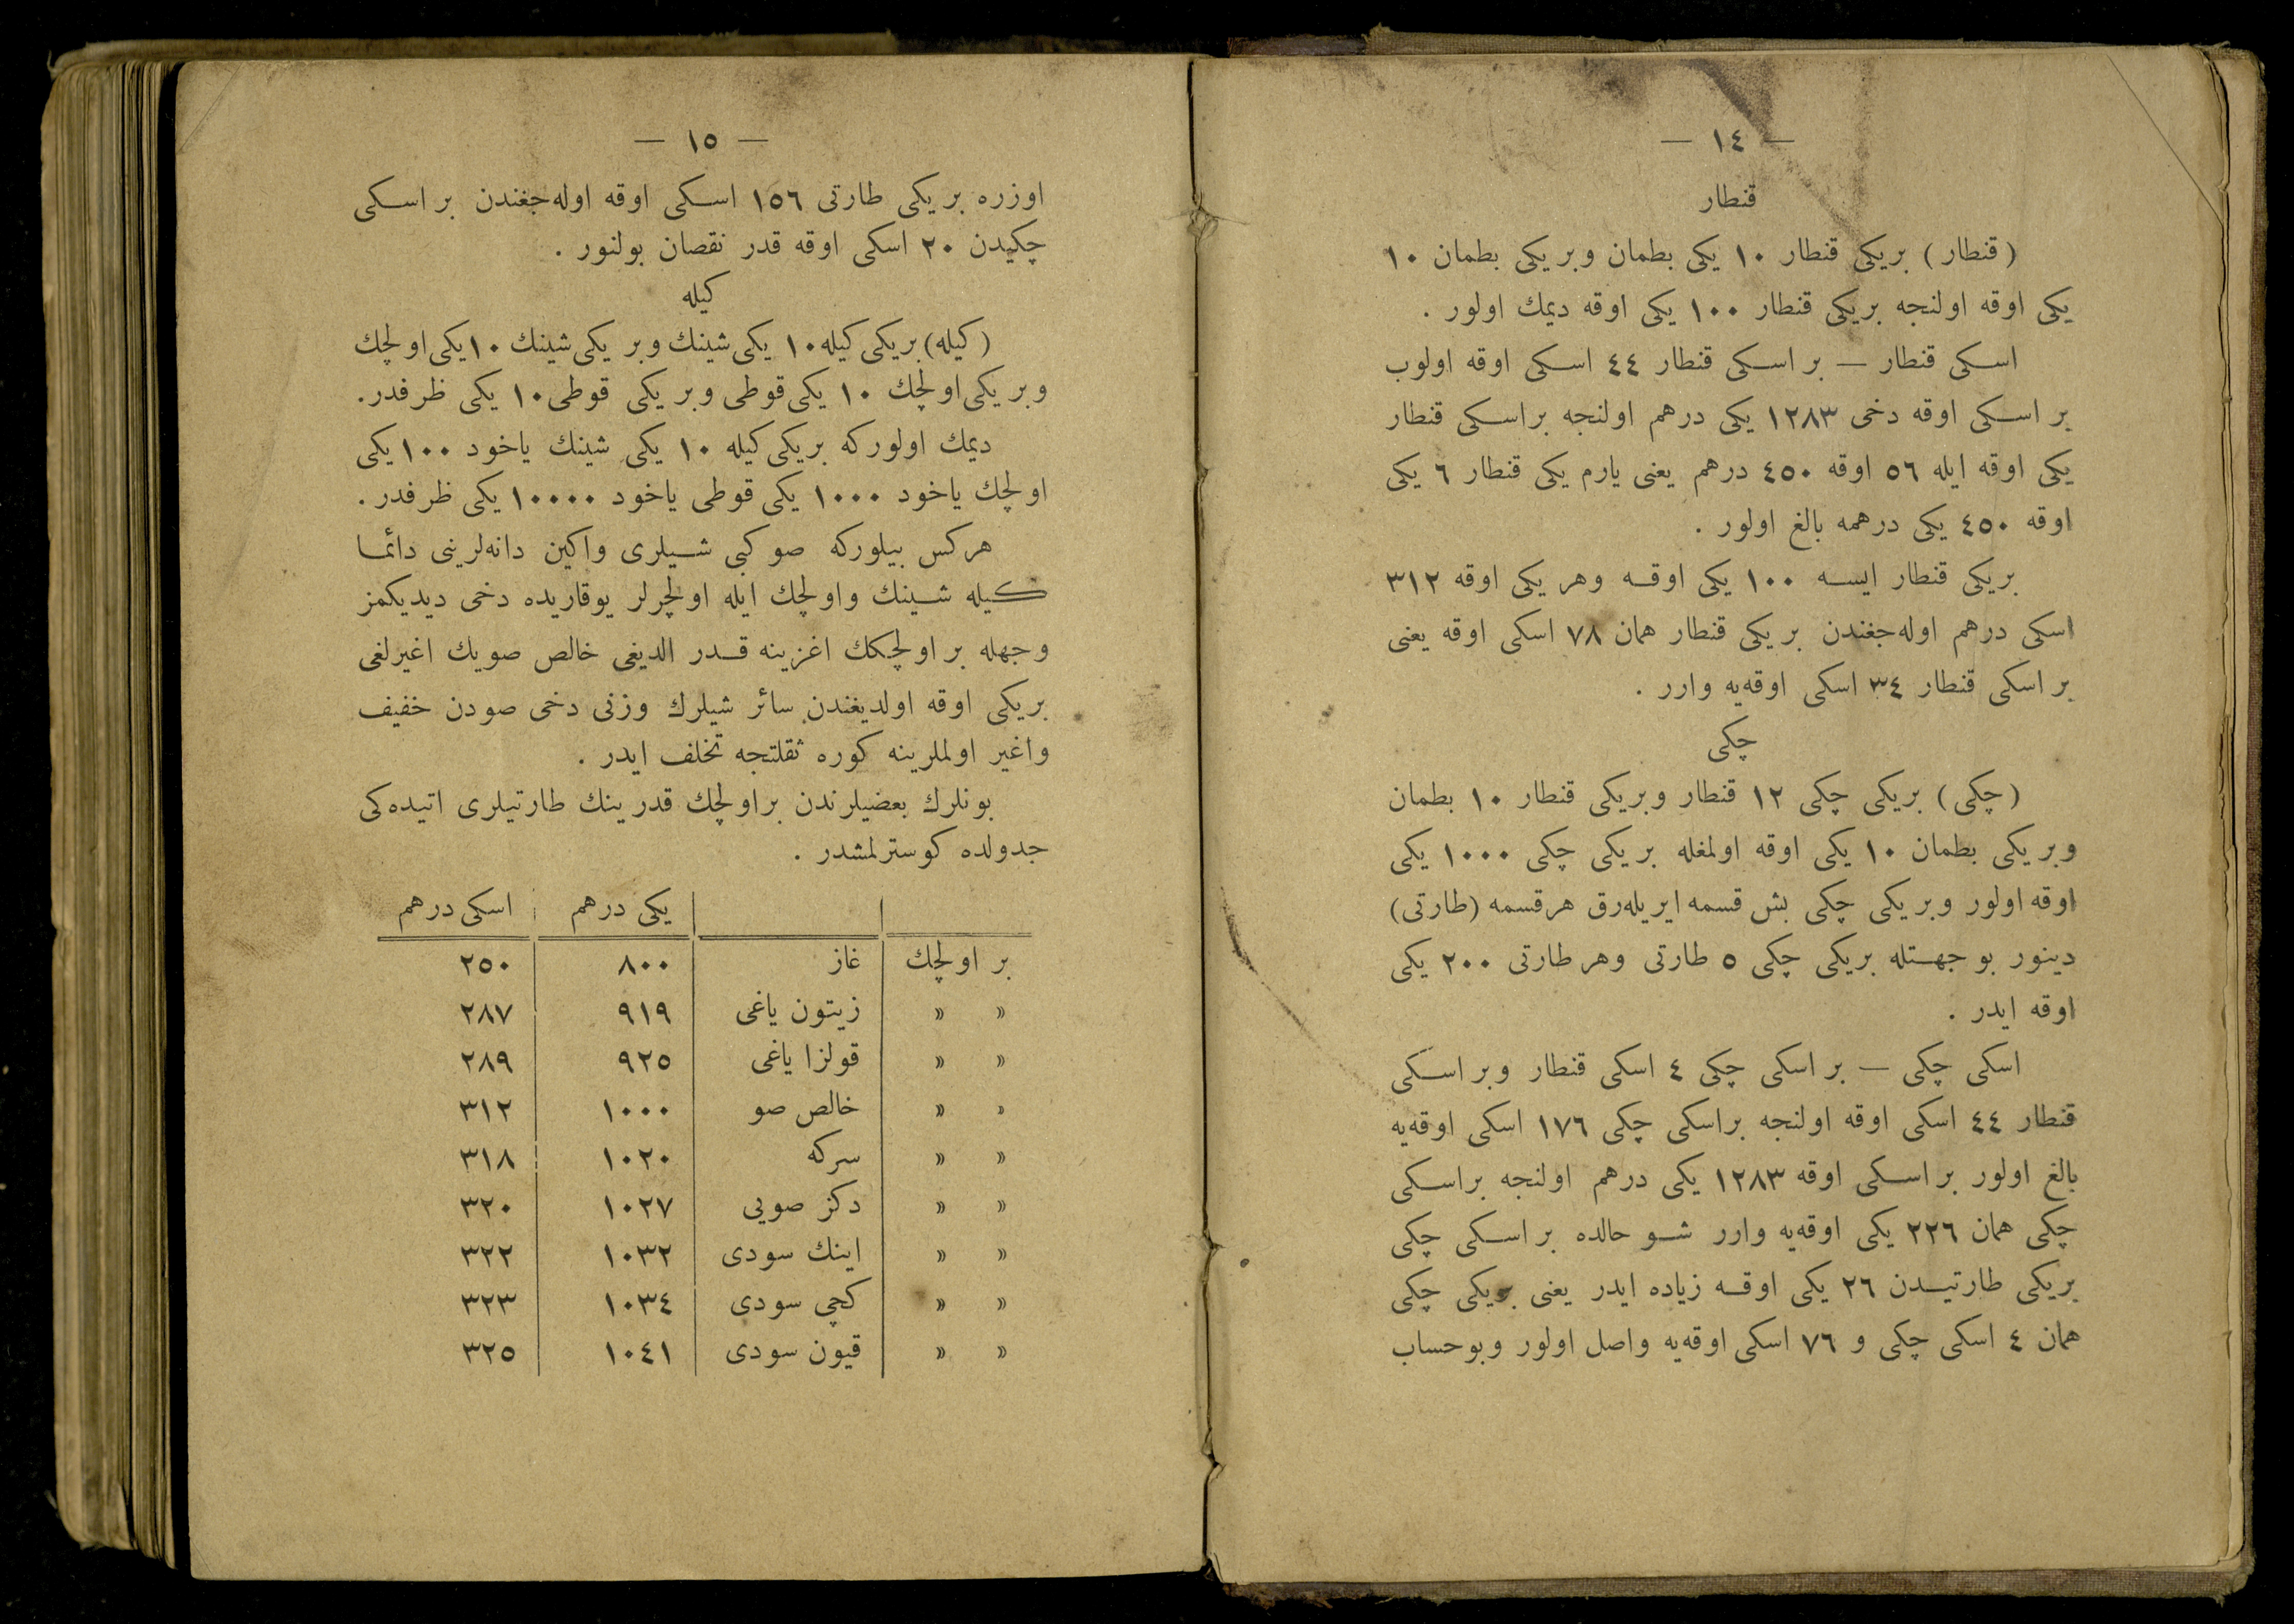 — ١٤ —
قنطار
(قنطار) بر يكى قنطار ١٠ يكى بطمان و بر يكى بطمان ١٠
يكى اوقه اولنجه بر يكى قنطار ١٠٠ يكى اوقه ديمك اولور .
اسكى قنطار — بر اسكى قنطار ٤٤ اسكى اوقه اولوب
بر اسكى اوقه دخى ١٢٨٣ يكى درهم اولنجه بر اسكى قنطار
يكى اوقه ايله ٥٦ اوقه ٤٥٠ درهم يعنى يارم يكى قنطار ٦ يكى
اوقه ٤٥٠ يكى درهمه بالغ اولور .
بر يكى قنطار ايسه ١٠٠ يكى اوقه وهر يكى اوقه ٣١٢
اسكى درهم اوله‌جغندن بر يكى قنطار همان ٧٨ اسكى اوقه يعنى
بر اسكى قنطار ٣٤ اسكى اوقه‌يه وارر .
چكى
(چكى) بر يكى چكى ١٢ قنطار و بر يكى قنطار ١٠ بطمان
و بر يكى بطمان ١٠ يكى اوقه اولمغله بر يكى چكى ١٠٠٠ يكى
اوقه اولور و بر يكى چكى بش قسمه ايريله‌رق هر قسمه (طارتى)
دينور بو جهتله بر يكى چكى ٥ طارتى وهر طارتى ٢٠٠ يكى
اوقه ايدر .
اسكى چكى — بر اسكى چكى ٤ اسكى قنطار و بر اسكى
قنطار ٤٤ اسكى اوقه اولنجه بر اسكى چكى ١٧٦ اسكى اوقه‌يه
بالغ اولور بر اسكى اوقه ١٢٨٣ يكى درهم اولنجه بر اسكى
چكى همان ٢٢٦ يكى اوقه‌يه وارر شو حالده بر اسكى چكى
بر يكى طارتيدن ٢٦ يكى اوقه زياده ايدر يعنى بر يكى چكى
همان ٤ اسكى چكى و ٧٦ اسكى اوقه‌يه واصل اولور و بو حساب
— ١٥ —
اوزره بر يكى طارتى ١٥٦ اسكى اوقه اوله‌جغندن بر اسكى
چكيدن ٢٠ اسكى اوقه قدر نقصان بولنور .
كيله
(كيله) بر يكى كيله ١٠ يكى شينك و بر يكى شينك ١٠ يكى اولچك
و بر يكى اولچك ١٠ يكى قوطى و بر يكى قوطى ١٠ يكى ظرفدر.
ديمك اولوركه بر يكى كيله ١٠ يكى شينك ياخود ١٠٠ يكى
اولچك ياخود ١٠٠٠ يكى قوطى ياخود ١٠٠٠٠ يكى ظرفدر.
هركس بيلوركه صو كبى شيلرى واكين دانه‌لرينى دائما
كيله شينك واولچك ايله اولچرلر يوقاريده دخى ديديكمز
وجهله بر اولچكك اغزينه قدر الديغى خالص صويك اغيرلغى
بر يكى اوقه اولديغندن سائر شيلرك وزنى دخى صودن خفيف
واغير اولملرينه كوره ثقلتجه تخلف ايدر .
بونلرك بعضيلرندن بر اولچك قدرينك طارتيلرى اتيده‌كى
جدولده كوسترلمشدر .
يكى درهم اسكى درهم
بر اولچك غاز ٨٠٠ ٢٥٠
» » زيتون ياغى ٩١٩ ٢٨٧
» » قولزا ياغى ٩٢٥ ٢٨٩
» » خالص صو ١٠٠٠ ٣١٢
» » سركه ١٠٢٠ ٣١٨
» » دكز صويى ١٠٢٧ ٣٢٠
» » اينك سودى ١٠٣٢ ٣٢٢
» » كچى سودى ١٠٣٤ ٣٢٣
» » قيون سودى ١٠٤١ ٣٢٥